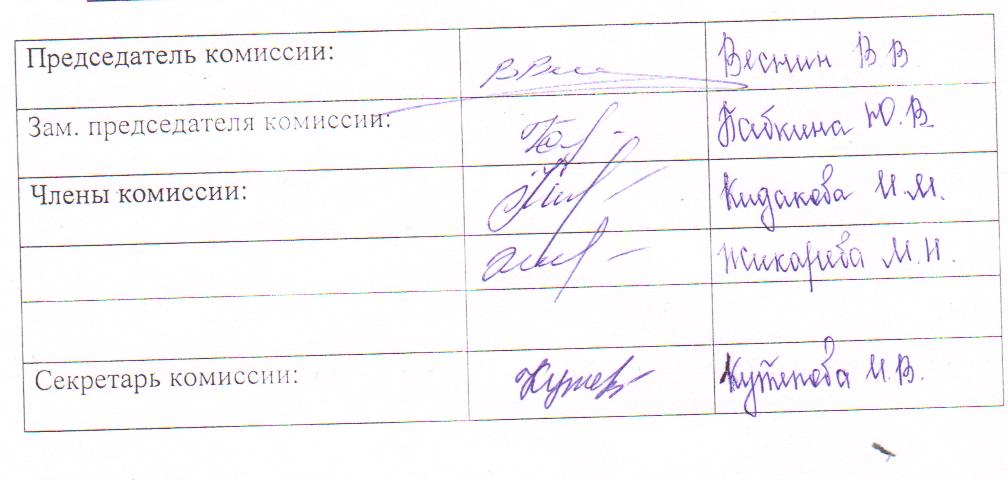 Председатель комиссии: Веснин В В.
Зам. председателя комиссии: Бабкина Ю. В
Члены комиссии: Кидакова И. М.
Жикарева М. Н.
Секретарь комиссии: Кутепова И. В.